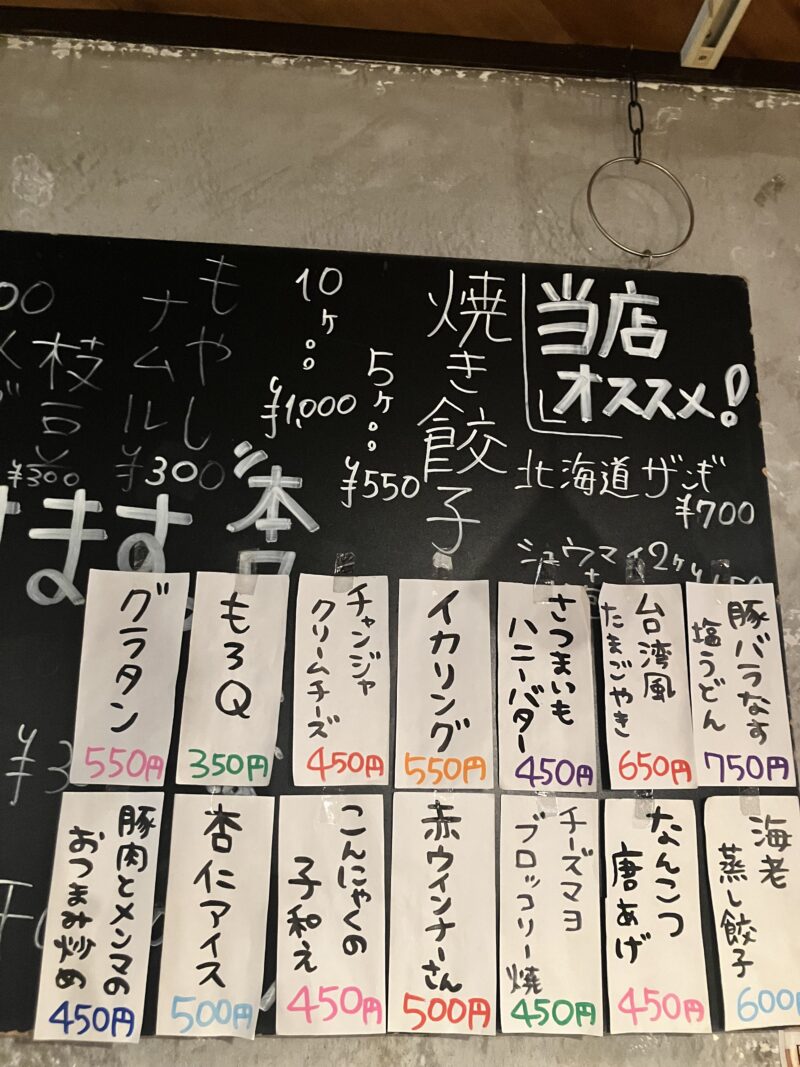 当店
オススメ!
北海道ザンギ
¥700
シュウマイ2ケ
焼き餃子
5ケ。。
¥550
10ケ。。
¥1,000
もやし
ナムル
¥300
枝豆
¥300
本日
ます。
豚バラなす
塩うどん
750円
台湾風
たまごやき
650円
さつまいも
ハニーバター
450円
イカリング
550円
チャンジャ
クリームチーズ
450円
もろQ
350円
グラタン
550円
海老
蒸し餃子
600
なんこつ
唐あげ
450円
チーズマヨ
ブロッコリー焼
450円
赤ウインナーさん
500円
こんにゃくの
子和え
450円
杏仁アイス
500円
豚肉とメンマの
おつまみ炒め
450円